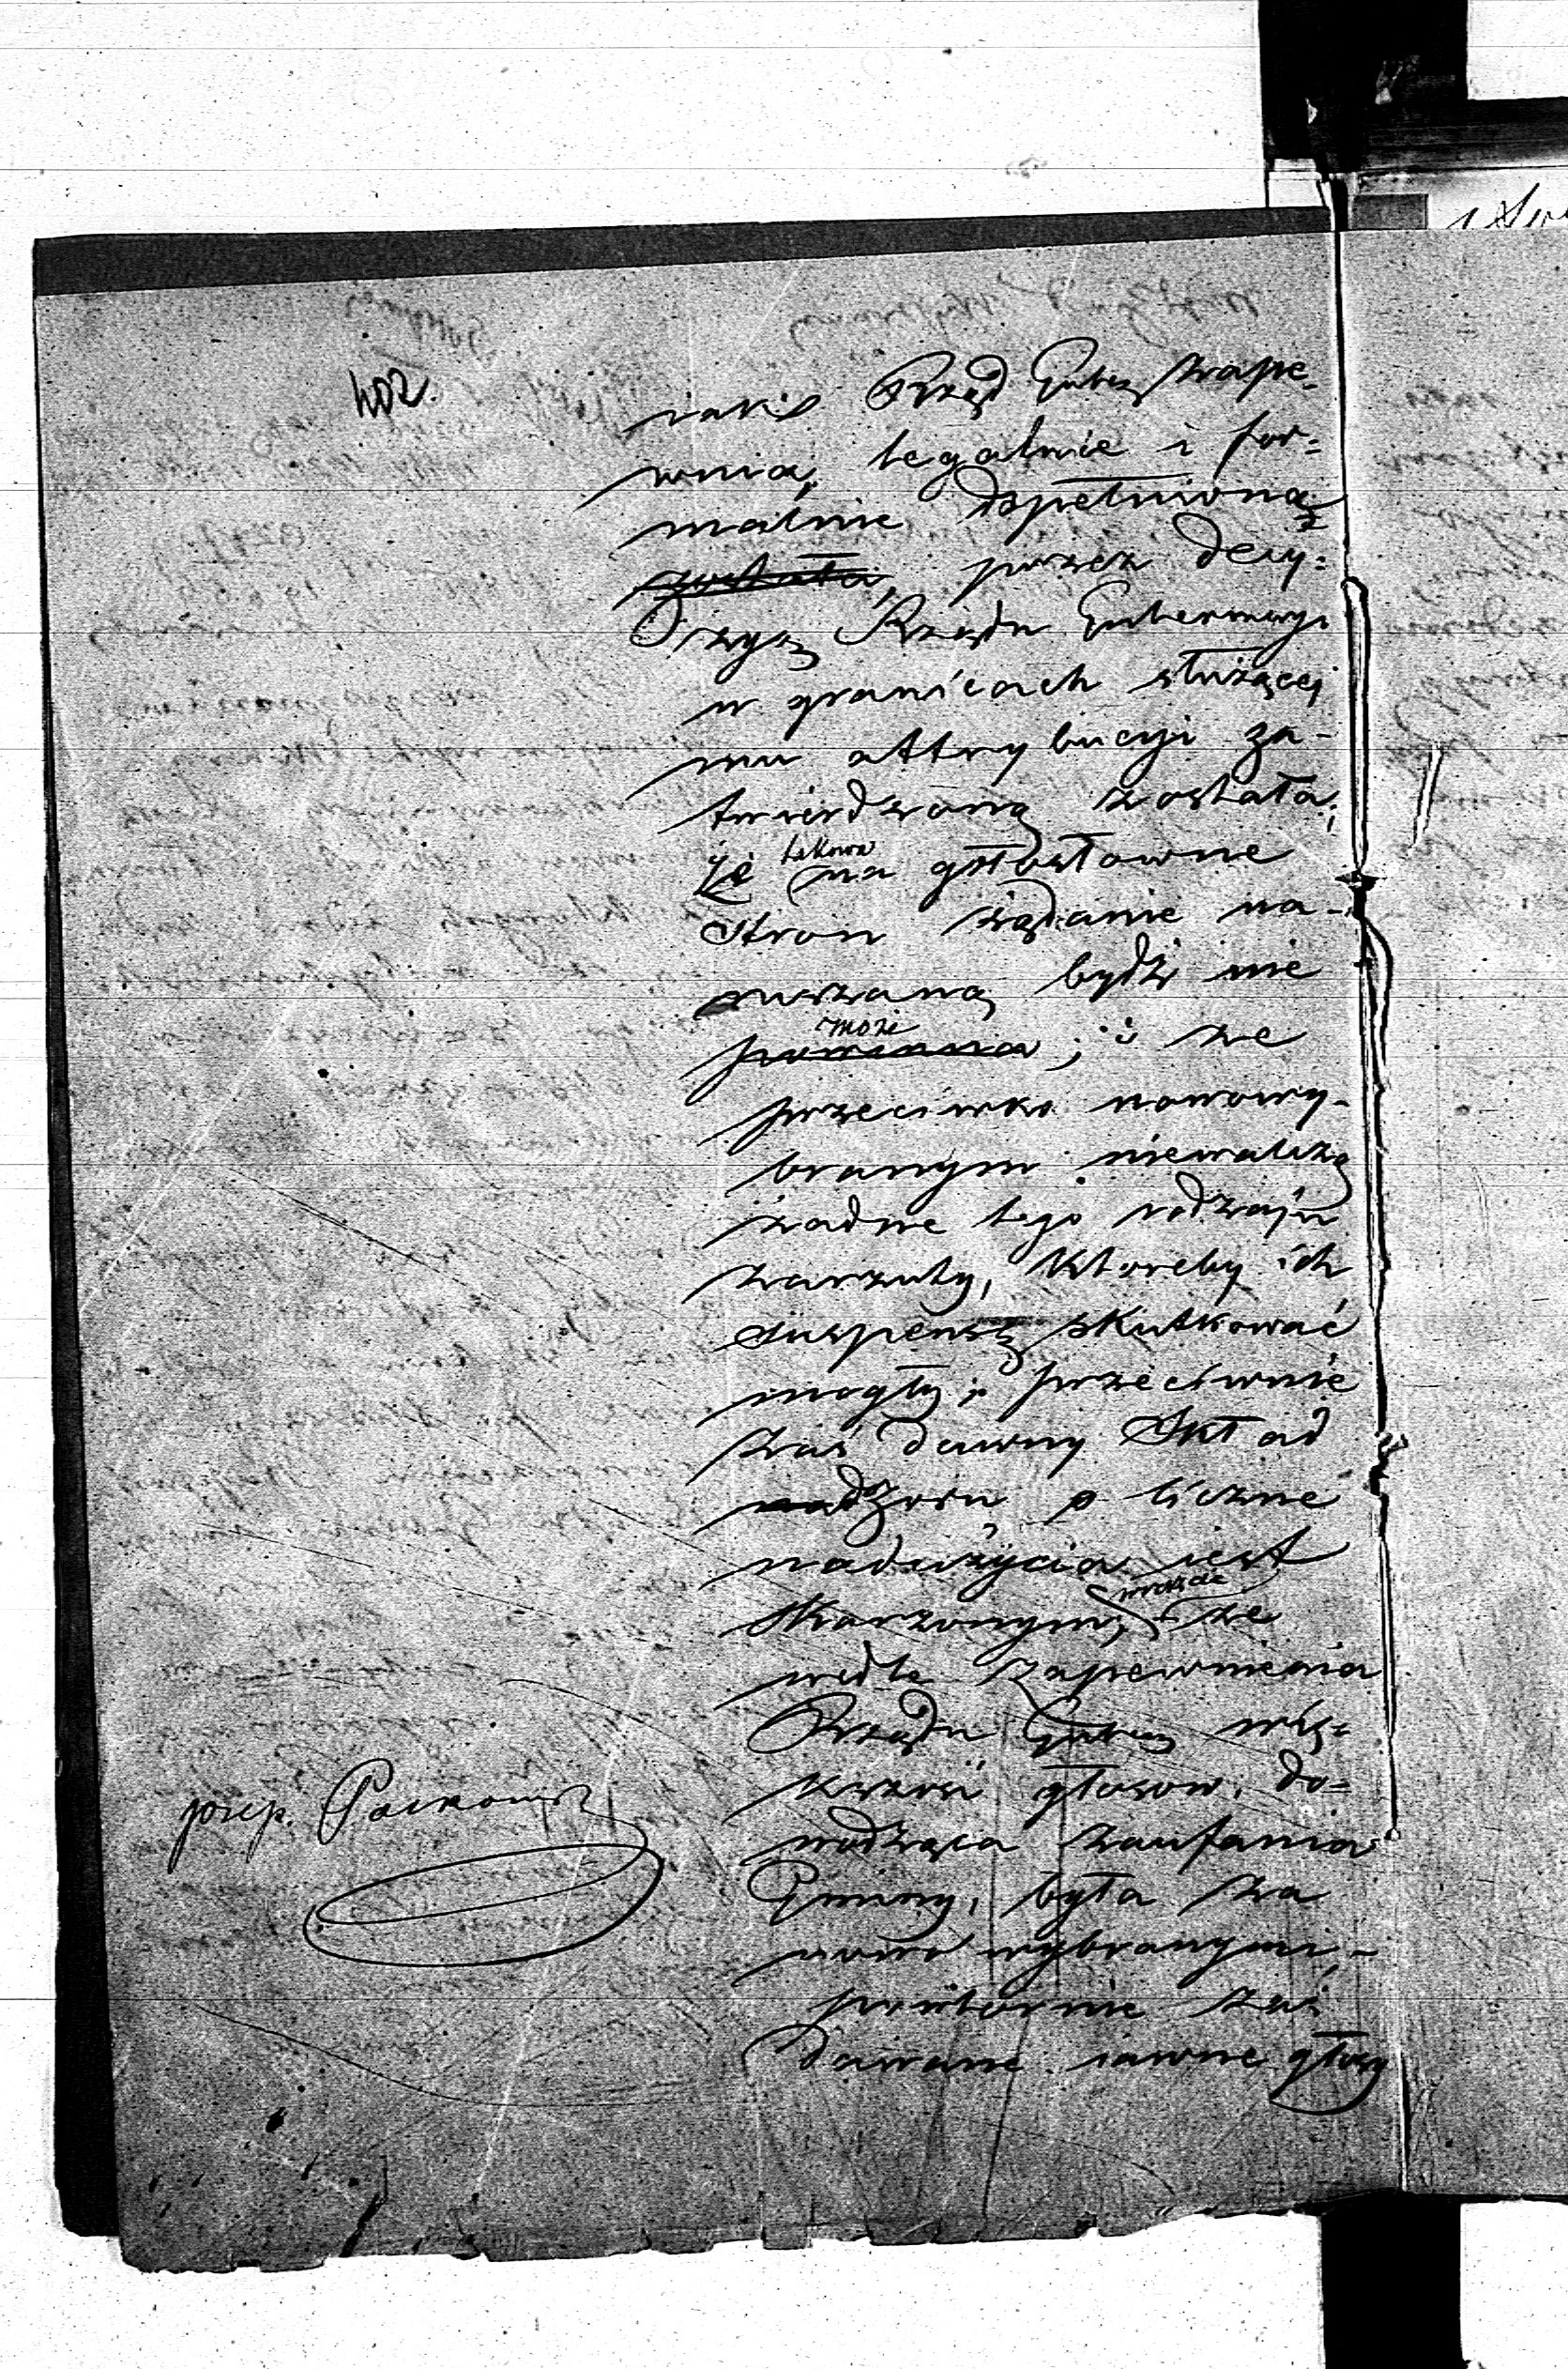 402.
iakie Rząd Guber zape=
wnia, legalnie i for=
malnie dopełnioną
została, przez decy=
zyą Rządu Gubernwgo
w granicach służącej
mu attrybucyi za-
twierdzoną została;
że takowa na gołosłowne
Stron żądanie na-
ruszaną bydź nie
powinna może; i że
przeciwko nowowy-
branym niewalczą
żadne tego rodzaju
zarzuty, któreby ich
suspensą skutkować
mogły; przeciwnie
zaś dawny Skład
nadzoru o liczne
nadużycia jest
skarżonym, wreszcie że
wedle zapewnienia
Rządu Guber wię=
kszość głosow, do=
wodząca zaufania
Gminy, była za
nowo wybranymi,-
powtórnie zaś
dawane iawne głosy